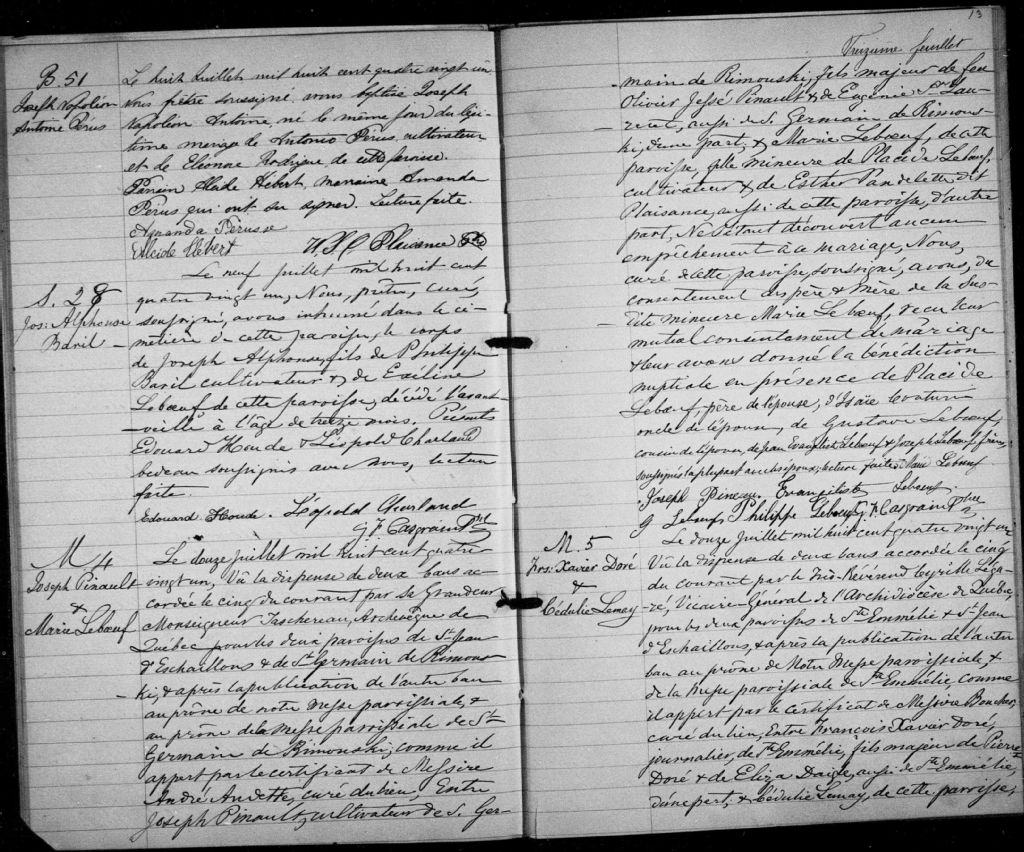 B. 51
Joseph Napoléon
Antoine Pérus
Le huit Juillet mil huit cent quatre vingt un
Nous prêtre soussigné, avons baptisé Joseph
Napoléon Antoine, né le même jour du légi-
time mariage de Antonio Pérus, cultivateur
et de Eléonore Rodrigue de cette paroisse.
Parrain Alcide Hébert, marraine Amanda
Pérus qui ont su signer. Lecture faite.
Amanda Pérusse
Alcide Hébert
S. 28
Jos: Alphonse
Baril
Le neuf juillet mil huit cent
quatre vingt un, Nous, prêtre, curé,
soussigné, avons inhumé dans le ci-
metière de cette paroisse, le corps
de Joseph Alphonse, fils de Philippe
Baril cultivateur & de Exiline
Leboeuf de cette paroisse, décédé l'avant-
veille à l'âge de treize mois. Présents
Edouard Houde & Léopold Charland
bedeau soussignés avec nous, lecture
faite.
Edouard Houde. Léopold Charland
Casgrain Ptre
M 4
Joseph Pinault
&
Marie Leboeuf
Le douze juillet mil huit cent quatre
vingt un, Vu la dispense de deux bans ac-
cordée le cinq du courant par Sa Grandeur
Monseigneur Taschereau, Archevêque de
Québec pour les deux paroisses de St Jean
d'Eschaillons & de St Germain de Rimous-
ki, & après la publication de l'autre ban
au prône de notre messe paroissiale, &
au prône de la messe paroissiale de St
Germain de Rimouski, comme il
appert par le certificat de Messire
André Audette, curé du lieu, Entre
Joseph Pinault, cultivateur de S. Ger-
13
Treizième feuillet
main de Rimouski, fils majeur de feu
Olivier Jessé Pinault & de Eugénie St Lau-
rent, aussi de S. Germain de Rimous-
ki, d'une part, & Marie Leboeuf, de cette
paroisse, fille mineure de Placide Leboeuf,
cultivateur & de Esther Pandelette dit
Plaisance, aussi de cette paroisse, d'autre
part, Ne s'étant découvert aucun
empêchement à ce mariage, Nous,
curé de cette paroisse, soussigné, avons, du
consentement des père & mère de la sus-
dite mineure Marie Leboeuf, reçu leur
mutuel consentement de mariage
& leur avons donné la bénédiction
nuptiale en présence de Placide
Leboeuf, père de l'épouse, d'Isaïe
oncle de l'épouse, de Gustave Leboeuf,
cousin de l'épouse, de Jean Evangéliste Leboeuf & Joseph Leboeuf, frères,
soussignés la plupart avec les époux; lecture faite. Marie Leboeuf
Joseph Pineau. Evangéliste Leboeuf.
G Leboeuf Philippe Leboeuf Casgrain Ptre
M. 5
Frs: Xavier Doré
&
Cédulie Lemay
Le douze juillet mil huit cent quatre vingt un
Vu la dispense de deux bans accordée le cinq
du courant par le Très-Révérend Cyrille Léga-
ré, Vicaire-Général de l'Archidiocèse de Québec,
pour les deux paroisses de Ste Emmélie & St Jean
d'Eschaillons, & après la publication de l'autre
ban au prône de Notre Messe paroissiale &
de la messe paroissiale de Ste Emmélie comme
il appert par le certificat de Messire Boucher,
curé du lieu, Entre François Xavier Doré,
journalier, de Ste Emmélie, fils majeur de Pierre
Doré & de Eliza Daigle, aussi de Ste Emmélie,
d'une part, & Cédulie Lemay, de cette paroisse,